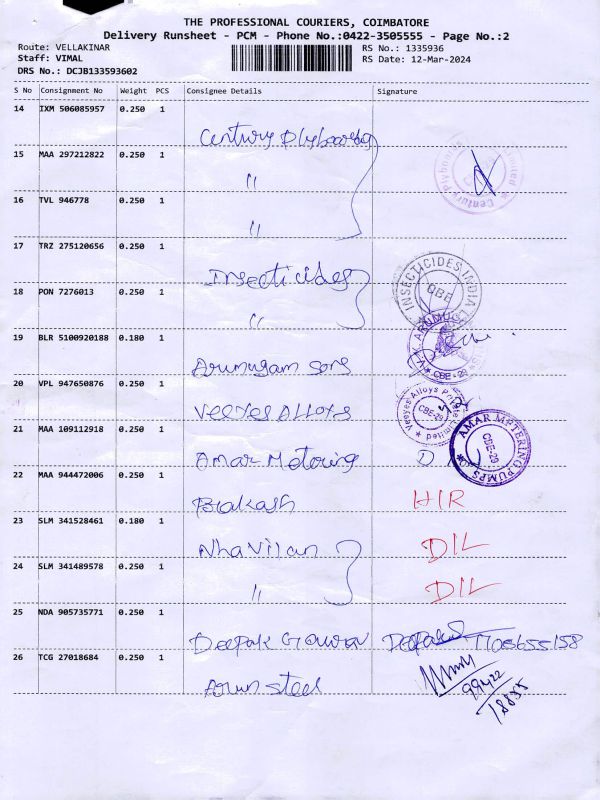 THE PROFESSIONAL COURIERS, COIMBATORE
Delivery Runsheet - PCM - Phone No.:0422-3505555 - Page No.:2
Route: VELLAKINAR RS No.: 1335936
Staff: VIMAL RS Date: 12-Mar-2024
DRS No.: DCJB133593602
S No Consignment No Weight PCS Consignee Details Signature
14 IXM 506085957 0.250 1
Century Plyboards
15 MAA 297212822 0.250 1
"
16 TVL 946778 0.250 1
"
17 TRZ 275120656 0.250 1
Insecticides INSECTICIDES INDIA CBE
18 PON 7276013 0.250 1
"
19 BLR 5100920188 0.180 1
Arumugam sons CBE-29
20 VPL 947650876 0.250 1
Veeyes Alloys Veeyes Alloys Private Limited CBE-29
21 MAA 109112918 0.250 1
Amar Metering AMAR METERING PUMPS CBE-29
22 MAA 944472006 0.250 1
Prakash HIR
23 SLM 341528461 0.180 1
DIL
24 SLM 341489578 0.250 1
" DIL
25 NDA 905735771 0.250 1
Deepak Deepak
26 TCG 27018684 0.250 1
Arun steel